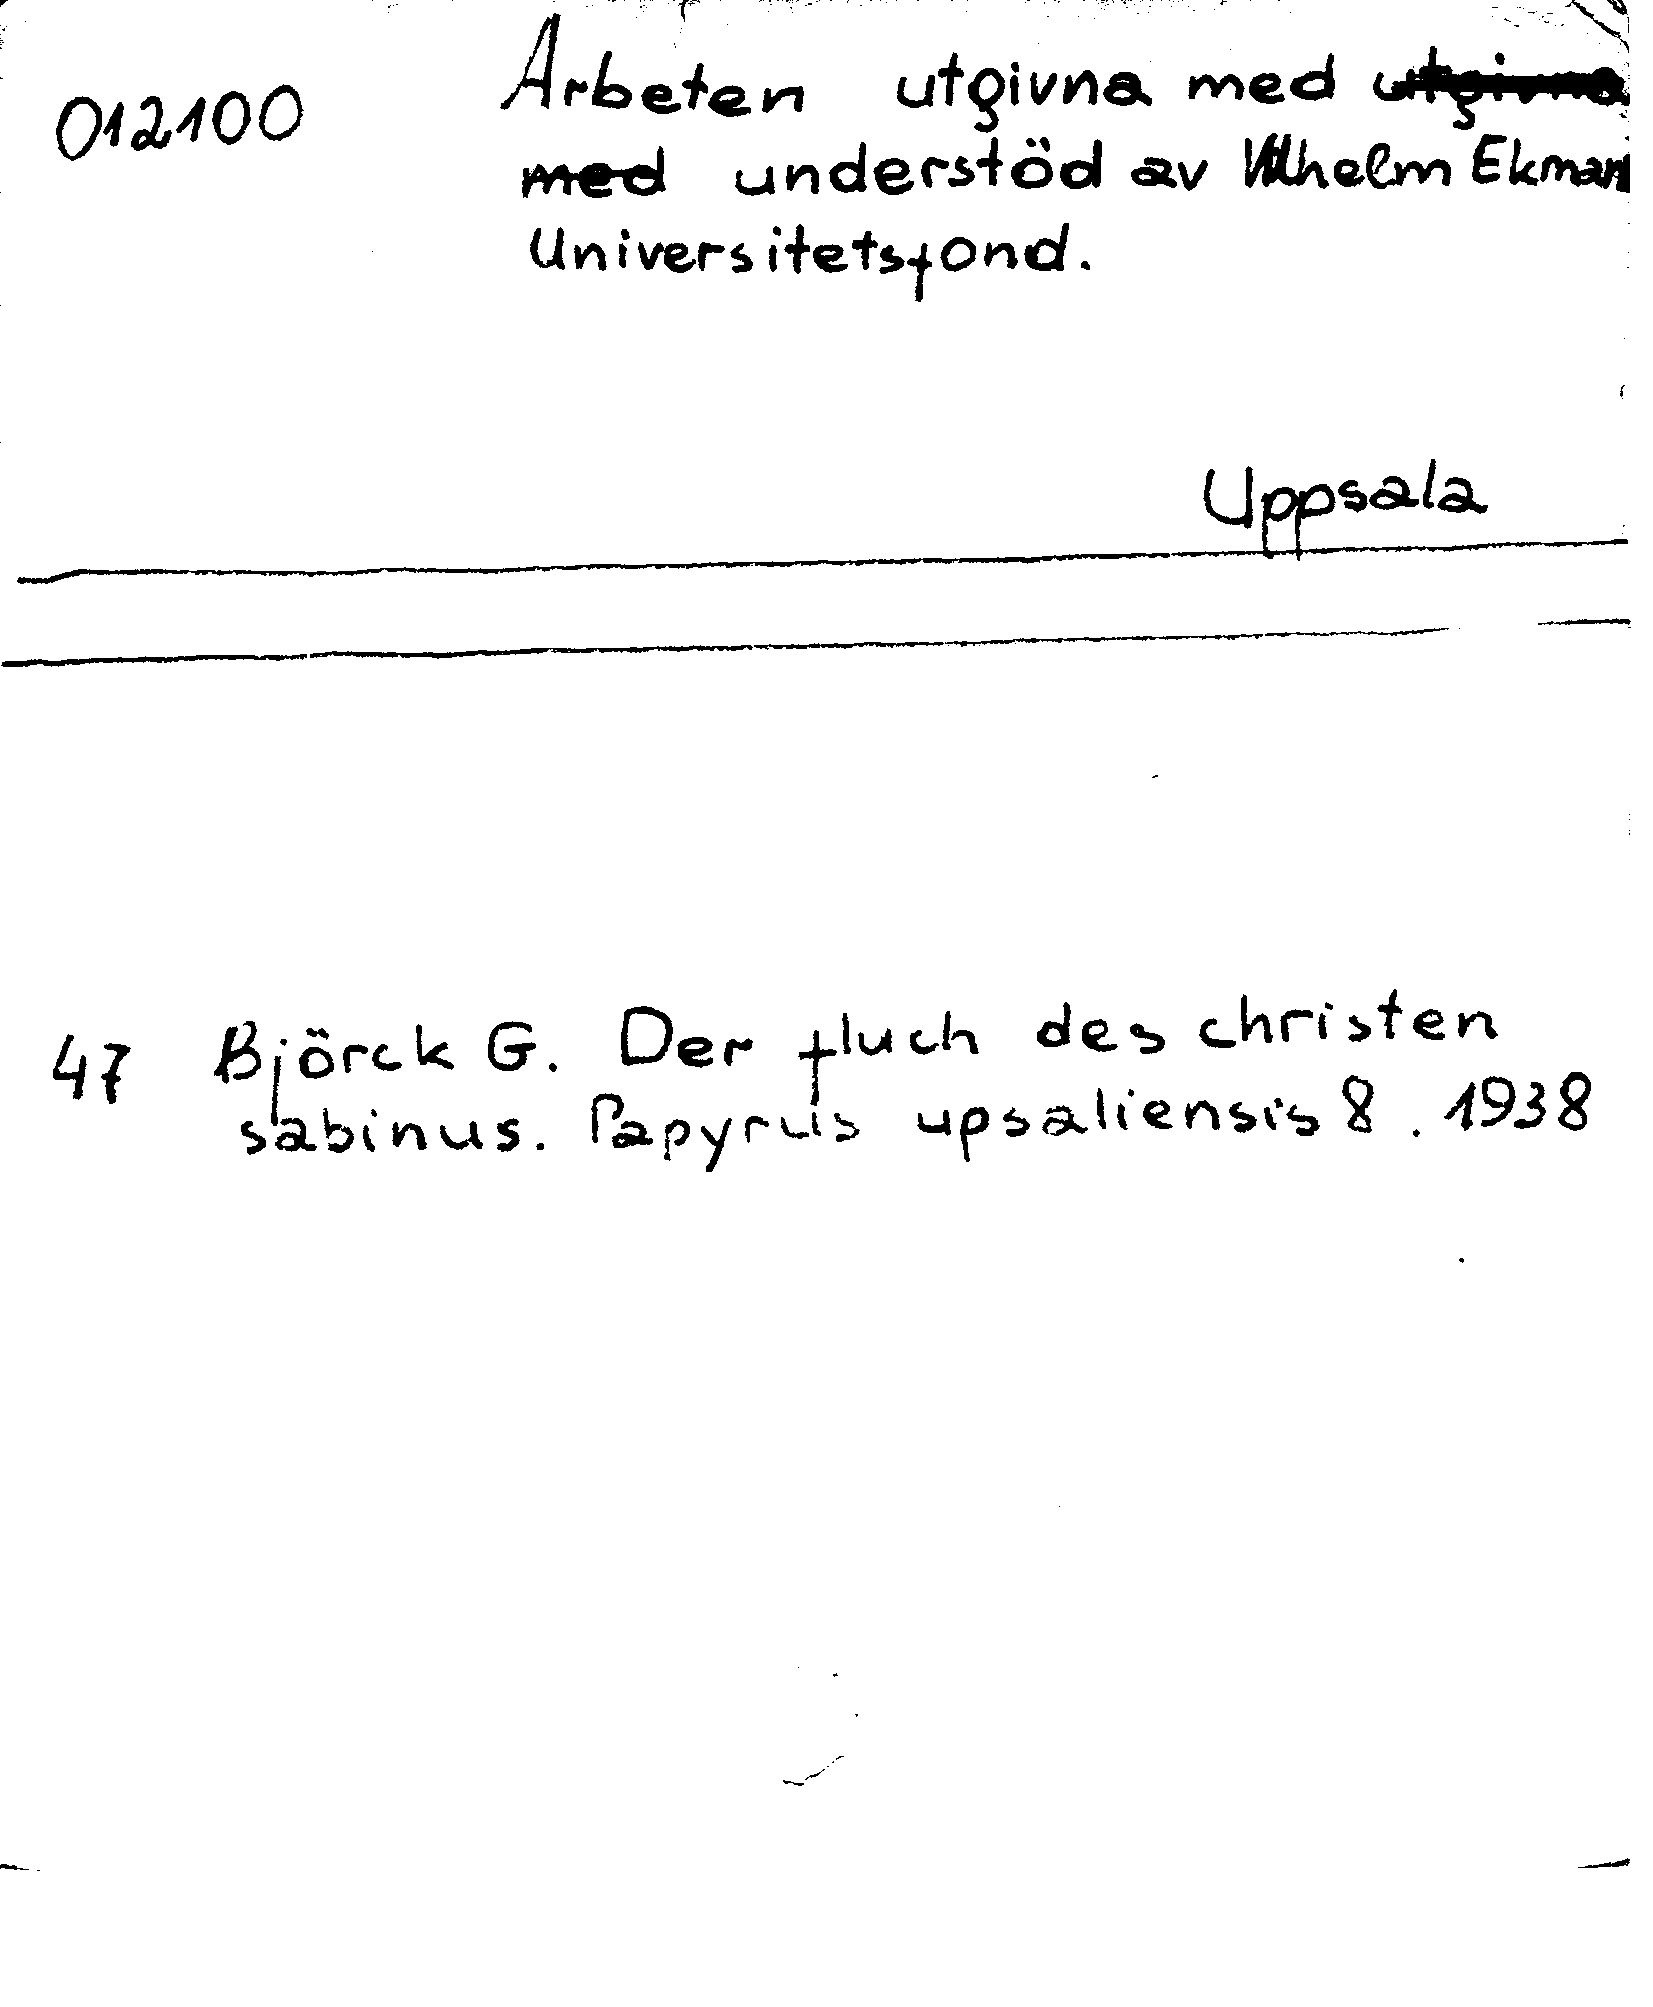 012100 Arbeten utgivna med utgivna
med understöd av Vilhelm Ekman
Universitetsfond.
Uppsala
47 Björck G. Der fluch des christen
sabinus. Papyrus upsaliensis 8. 1938